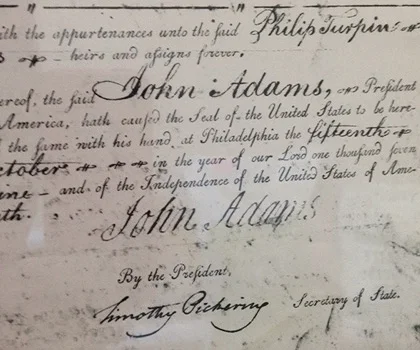 with the appurtenances unto the said Philip Turpin
heirs and assigns forever.
ereof, the said John Adams, President
America, hath caused the Seal of the United States to be here-
the same with his hand, at Philadelphia the fifteenth
ctober in the year of our Lord one thousand seven
ine and of the Independence of the United States of Ame-
th.
John Adams
By the President,
Timothy Pickering Secretary of State.